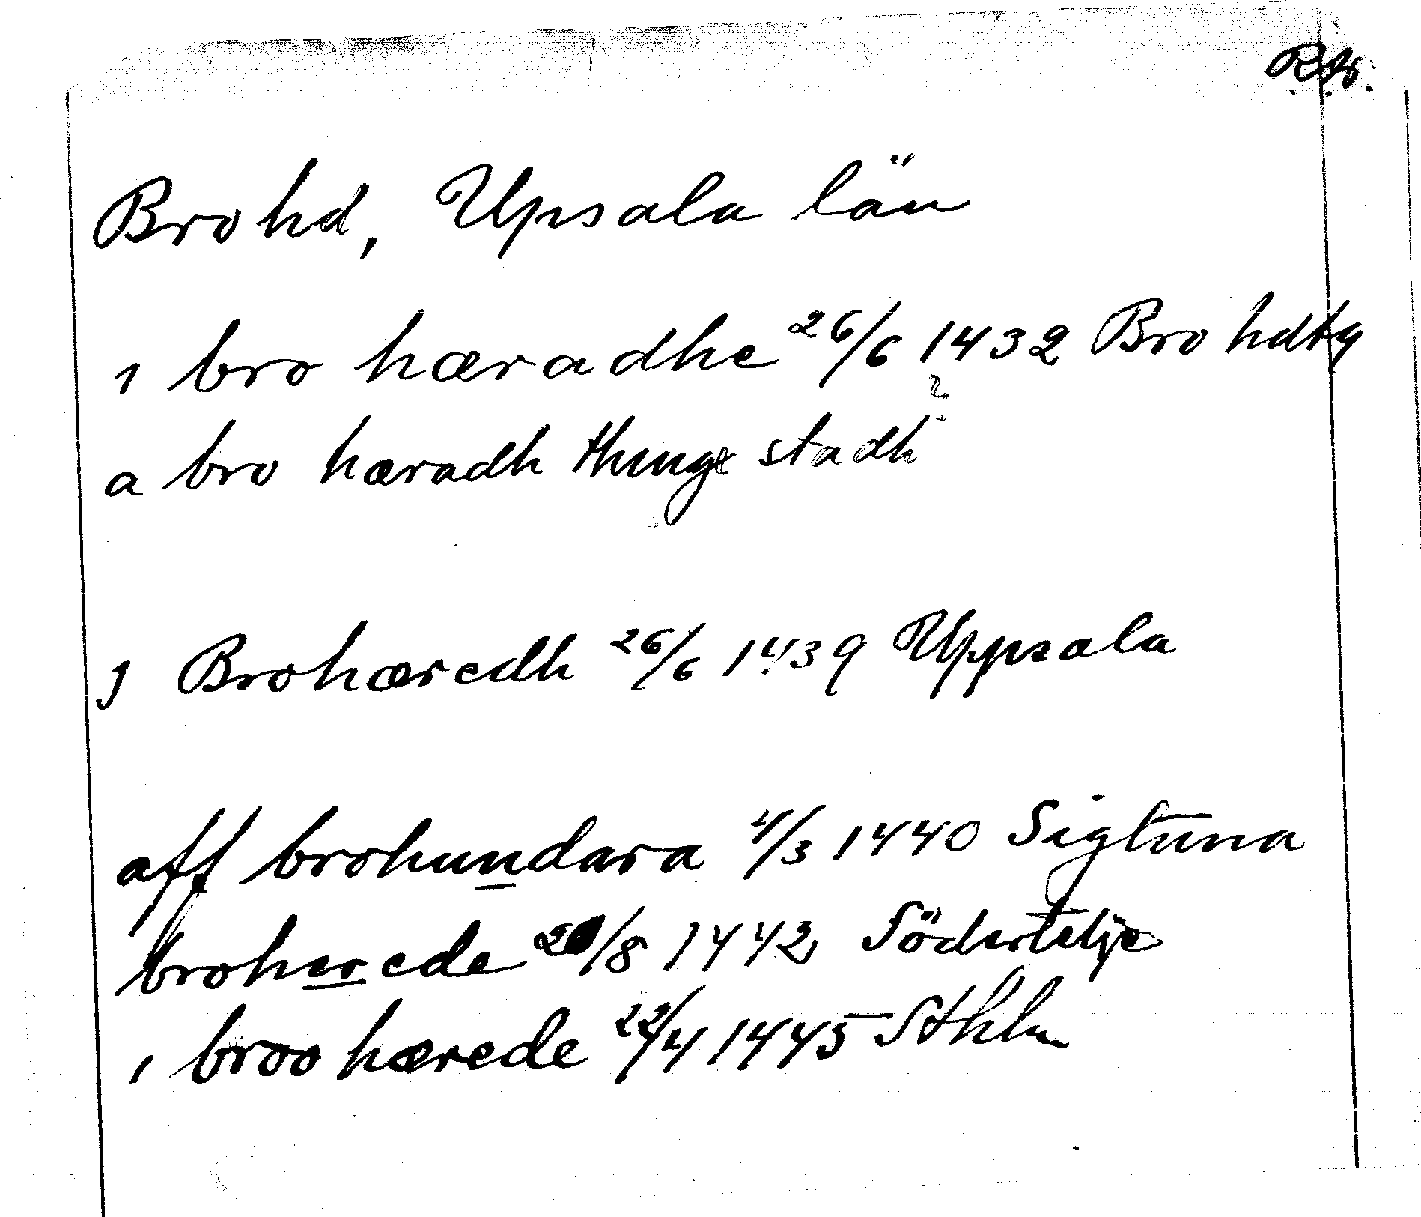 RA.
Bro hd, Upsala län
ı bro hæradhe 26/6 1432 Bro hdtg
a bro hæradh thinge stadh
J Brohæredh 26/6 1439 Uppsala
aff brohundara 4/3 1440 Sigtuna
broherede /8 1442 Södertelje
ı broo hærede 22/4 1445 Sthlm